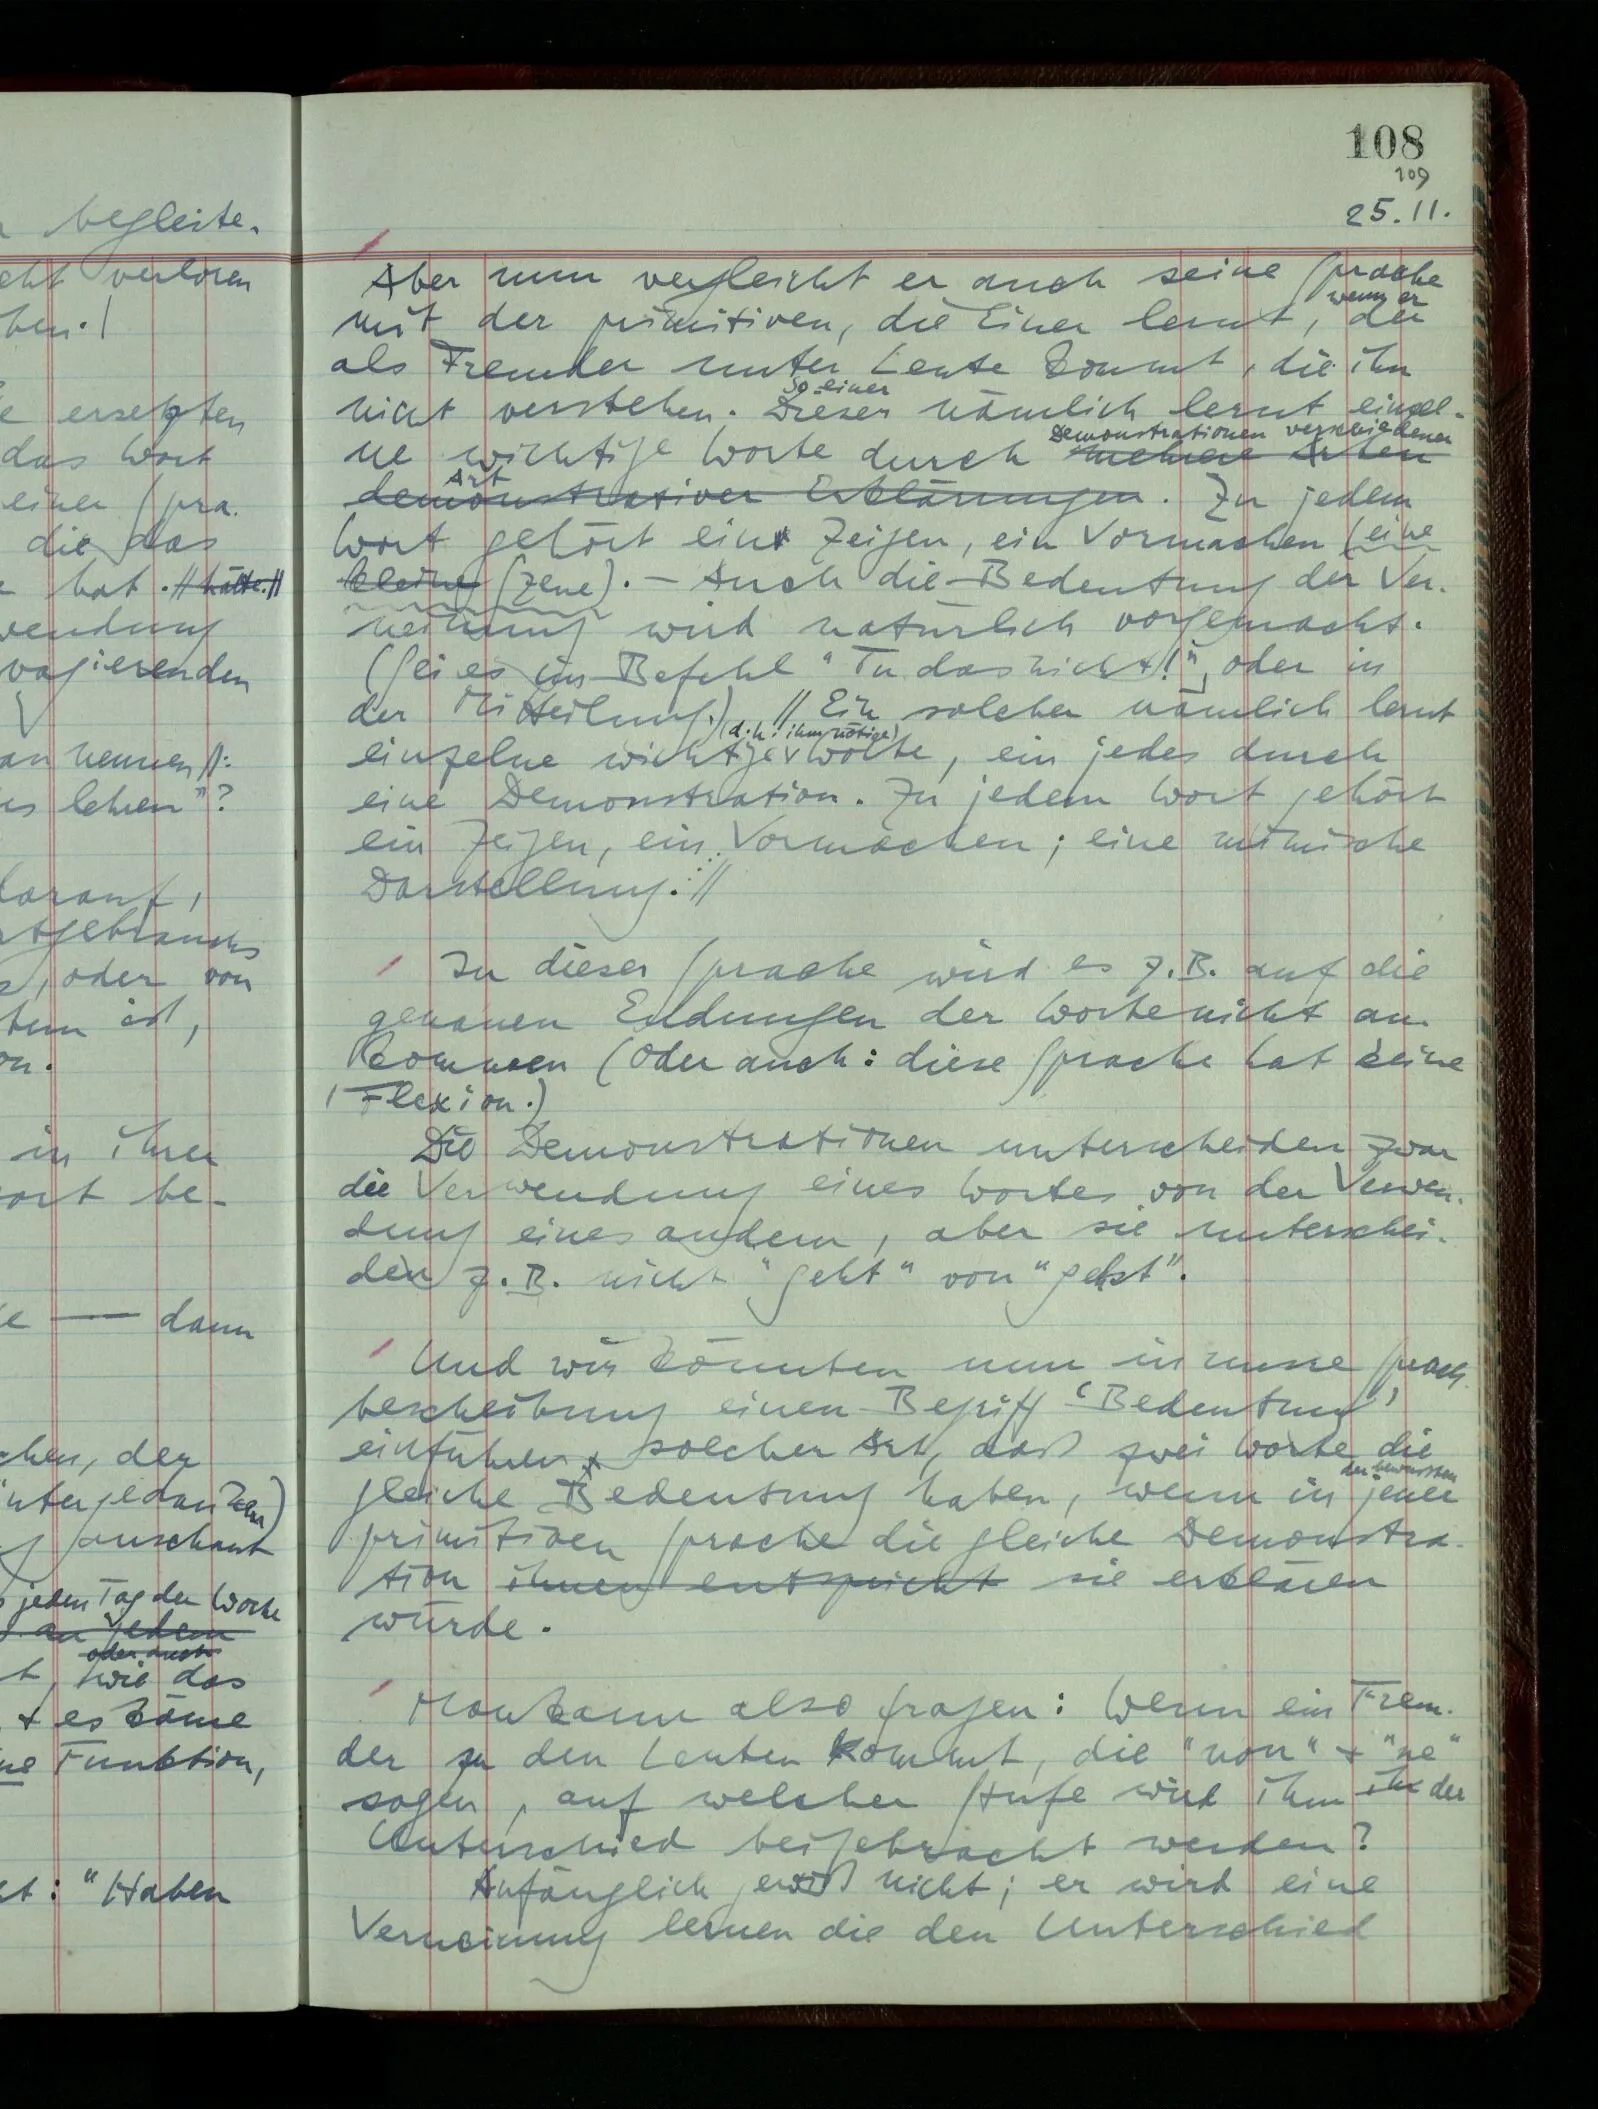 begleite.
verloren
ben.)
ersetzten
das Wort
einer Spra-
die das
hat. // hätte. //
wendung
vagierenden
nennen //:
lehren"?
darauf,
rtgebrauchs
oder von
ist,
on.
in ihrer
ort be-
— dann
chen, der
Hintergedanken)
anschaut
jeden Tag der Woche
an jedem
oder auch
wie das
+ es käme
ne Funktion,
: "Haben
108
109
25.11.
Aber nun vergleicht er auch seine Sprache
wenn er
mit der primitiven, die Einer lernt, der
als Fremder unter Leute kommt, die ihn
So einer
nicht verstehen. Dieser nämlich lernt einzel-
Demonstrationen verschiedener
ne wichtige Worte durch mehrere Arten
Art
demonstrativer Erklärungen. Zu jedem
Wort gehört ein Zeigen, ein Vormachen (eine
kleine Szene). – Auch die Bedeutung der Ver-
neinung wird natürlich vorgemacht.
(Sei es im Befehl "Tu das nicht!", oder in
der Mitteilung.) // Ein solcher nämlich lernt
(d.h. ihm nötige)
einzelne wichtige Worte, ein jedes durch
eine Demonstration. Zu jedem Wort gehört
ein Zeigen, ein Vormachen; eine mimische
Darstellung. //
In dieser Sprache wird es z.B. auf die
genauen Endungen der Worte nicht an-
kommen (Oder auch: diese Sprache hat keine
Flexion.)
Die Demonstrationen unterscheiden zwar
die Verwendung eines Wortes von der Verwen-
dung eines andern, aber sie unterschei-
den z.B. nicht "geht" von "gehst".
Und wir könnten nun in unsre Sprach-
beschreibung einen Begriff 'Bedeutung'
einführen, solcher Art, daß zwei Worte die
der bewussten
gleiche Bedeutung haben, wenn in jener
primitiven Sprache die gleiche Demonstra-
tion ihnen entspricht sie erklären
würde.
Man kann also fragen: Wenn ein Frem-
der zu den Leuten kommt, die "non" + "ne"
sagen, auf welcher Stufe wird ihm ihr der
Unterschied beigebracht werden?
Anfänglich gewiß nicht; er wird eine
Verneinung lernen die den Unterschied